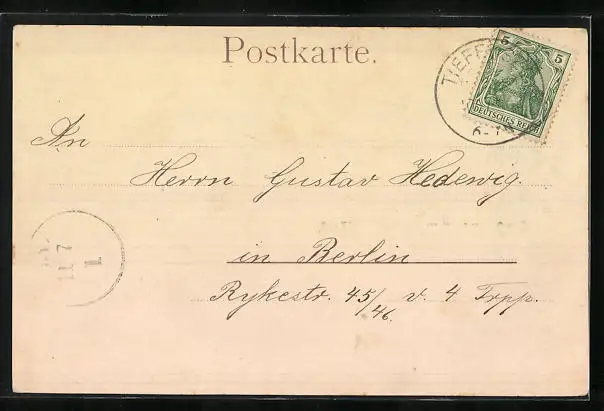 Postkarte.
5 5
DEUTSCHES REICH
An
Herrn Gustav Hedewig.
in Berlin
Rykestr. 45/46. v. 4 Trpp.
11 7
1